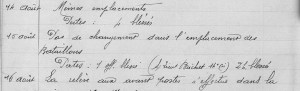 14 août Mêmes emplacements
Pertes : 4 blessés
15 août Pas de changement dans l'emplacement des
Bataillons
Pertes : 1 off. blessé (s/Lieut 24 blessés
16 août La relève aux avant postes s'effectue dans la